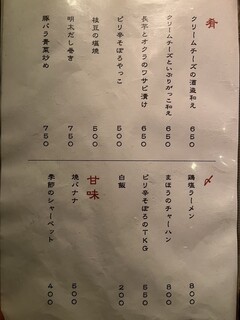 肴
クリームチーズの酒盗和え 650
クリームチーズといぶりがっこ和え 650
長芋とオクラのワサビ漬け 650
ピリ辛そぼろやっこ 500
枝豆の塩焼 500
明太だし巻き 750
豚バラ青菜炒め 750
〆
鶏塩ラーメン 800
まほうのチャーハン 800
ピリ辛そぼろのTKG 550
白飯 200
甘味
焼バナナ 500
季節のシャーベット 400